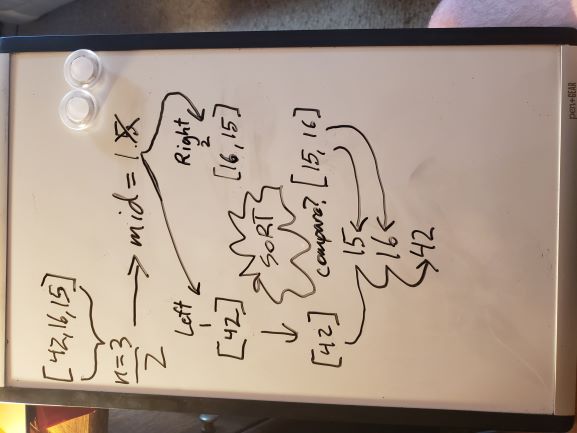 [42,16,15]
n=3 → mid = 1.5
2
Left Right
1 2
[42] [16,15]
SORT
[42] compare? [15, 16]
15
16
42
pen+GEAR